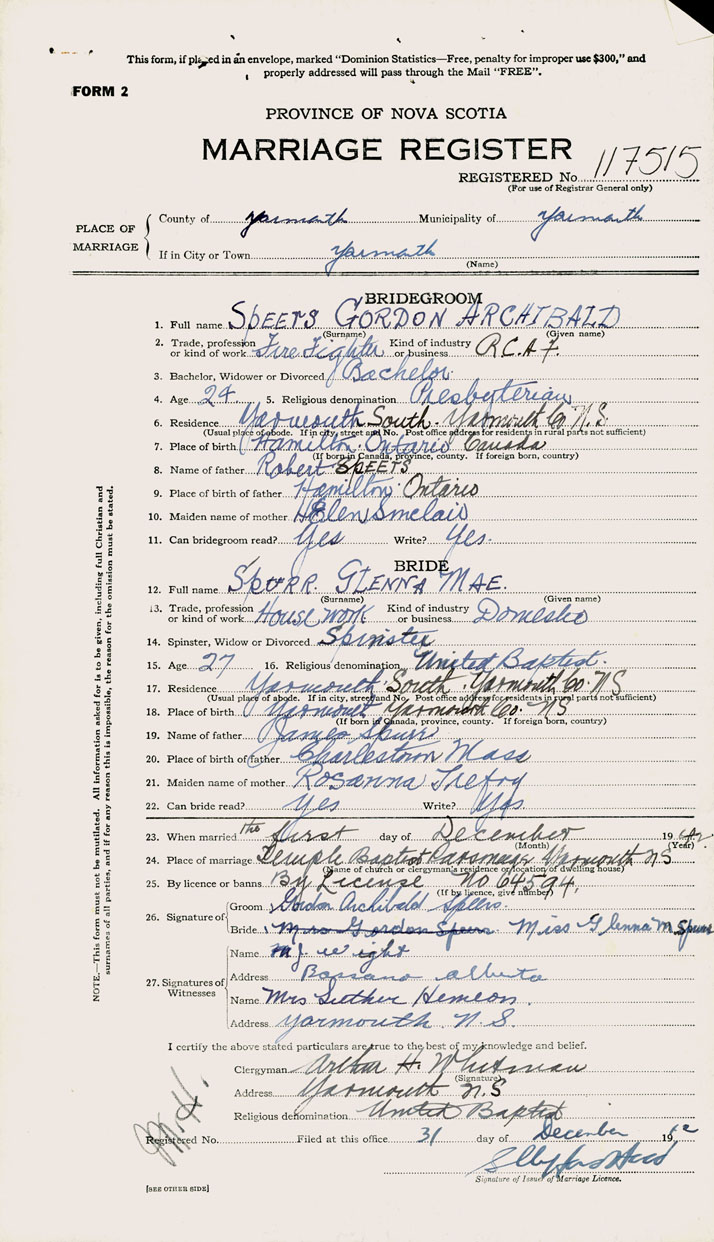 This form, if placed in an envelope, marked "Dominion Statistics—Free, penalty for improper use $300," and
properly addressed will pass through the Mail "FREE".
FORM 2
PROVINCE OF NOVA SCOTIA
MARRIAGE REGISTER
REGISTERED No. 117515
(For use of Registrar General only)
PLACE OF MARRIAGE
County of Yarmouth Municipality of Yarmouth
If in City or Town Yarmouth
(Name)
BRIDEGROOM
1. Full name Speers Gordon Archibald
(Surname) (Given name)
2. Trade, profession or kind of work Fire Fighter Kind of industry or business R.C.A.F.
3. Bachelor, Widower or Divorced Bachelor
4. Age 24 5. Religious denomination Presbyterian
6. Residence Yarmouth South. Yarmouth Co. N.S
(Usual place of abode. If in city, street and No. Post office address for residents in rural parts not sufficient)
7. Place of birth Hamilton Ontario Canada
(If born in Canada, province, county. If foreign born, country)
8. Name of father Robert Speers
9. Place of birth of father Hamilton Ontario
10. Maiden name of mother Helen Sinclair
11. Can bridegroom read? Yes Write? Yes.
BRIDE
12. Full name Spurr. Glenna Mae.
(Surname) (Given name)
13. Trade, profession or kind of work House work Kind of industry or business Domestic
14. Spinster, Widow or Divorced Spinster
15. Age 27 16. Religious denomination United Baptist.
17. Residence Yarmouth South. Yarmouth Co. NS
(Usual place of abode. If in city, street and No. Post office address for residents in rural parts not sufficient)
18. Place of birth Yarmouth Yarmouth Co. NS
(If born in Canada, province, county. If foreign born, country)
19. Name of father James Spurr
20. Place of birth of father Charlestown Mass
21. Maiden name of mother Rosanna Trefry
22. Can bride read? Yes Write? Yes
23. When married the first day of December 1942
(Month) (Year)
24. Place of marriage Temple Baptist Parsonage Yarmouth NS
(Name of church or clergyman's residence or location of dwelling house)
25. By licence or banns By License No 64594.
(If by licence, give number)
26. Signature of
Groom Gordon Archibald Speers.
Bride Mrs Gordon Speers Miss Glenna M Spurr
27. Signatures of Witnesses
Name M J Wright
Address Bassano Alberta
Name Mrs Luther Hemeon.
Address Yarmouth N.S.
I certify the above stated particulars are true to the best of my knowledge and belief.
Clergyman Arthur H. Whitman
(Signature)
Address Yarmouth N.S
Religious denomination United Baptist
Registered No. Filed at this office 31 day of December 1942
Signature of Issuer of Marriage Licence.
[SEE OTHER SIDE]
NOTE.—This form must not be mutilated. All information asked for is to be given, including full Christian and
surnames of all parties, and if for any reason this is impossible, the reason for the omission must be stated.